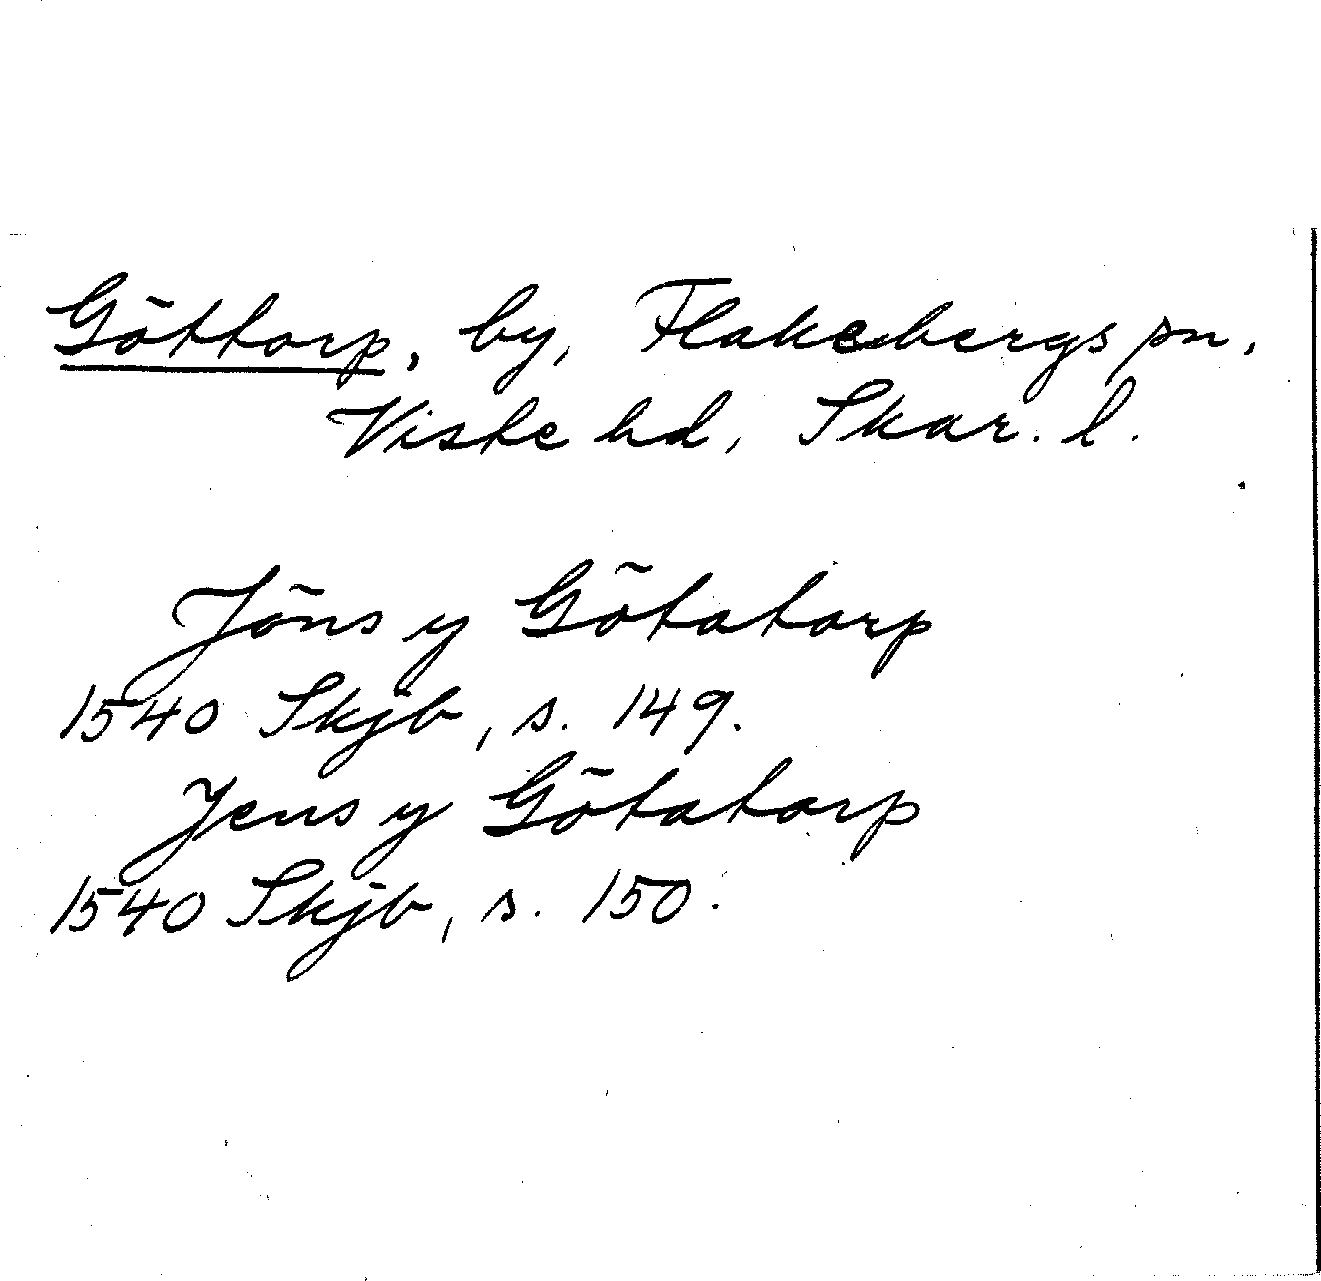 Göttorp, by, Flakebergs sn,
Viste hd, Skar. l.
Jöns y Götatorp
1540 Skjb, s. 149.
Jens y Götatorp
1540 Skjb, s. 150.